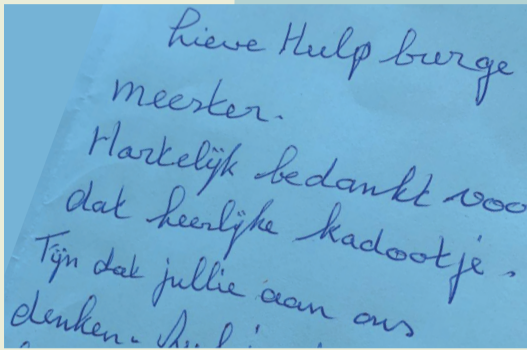 Lieve Hulp burge
meester.
Hartelijk bedankt voo
dat heerlijke kadootje.
Fijn dat jullie aan ons
denken.